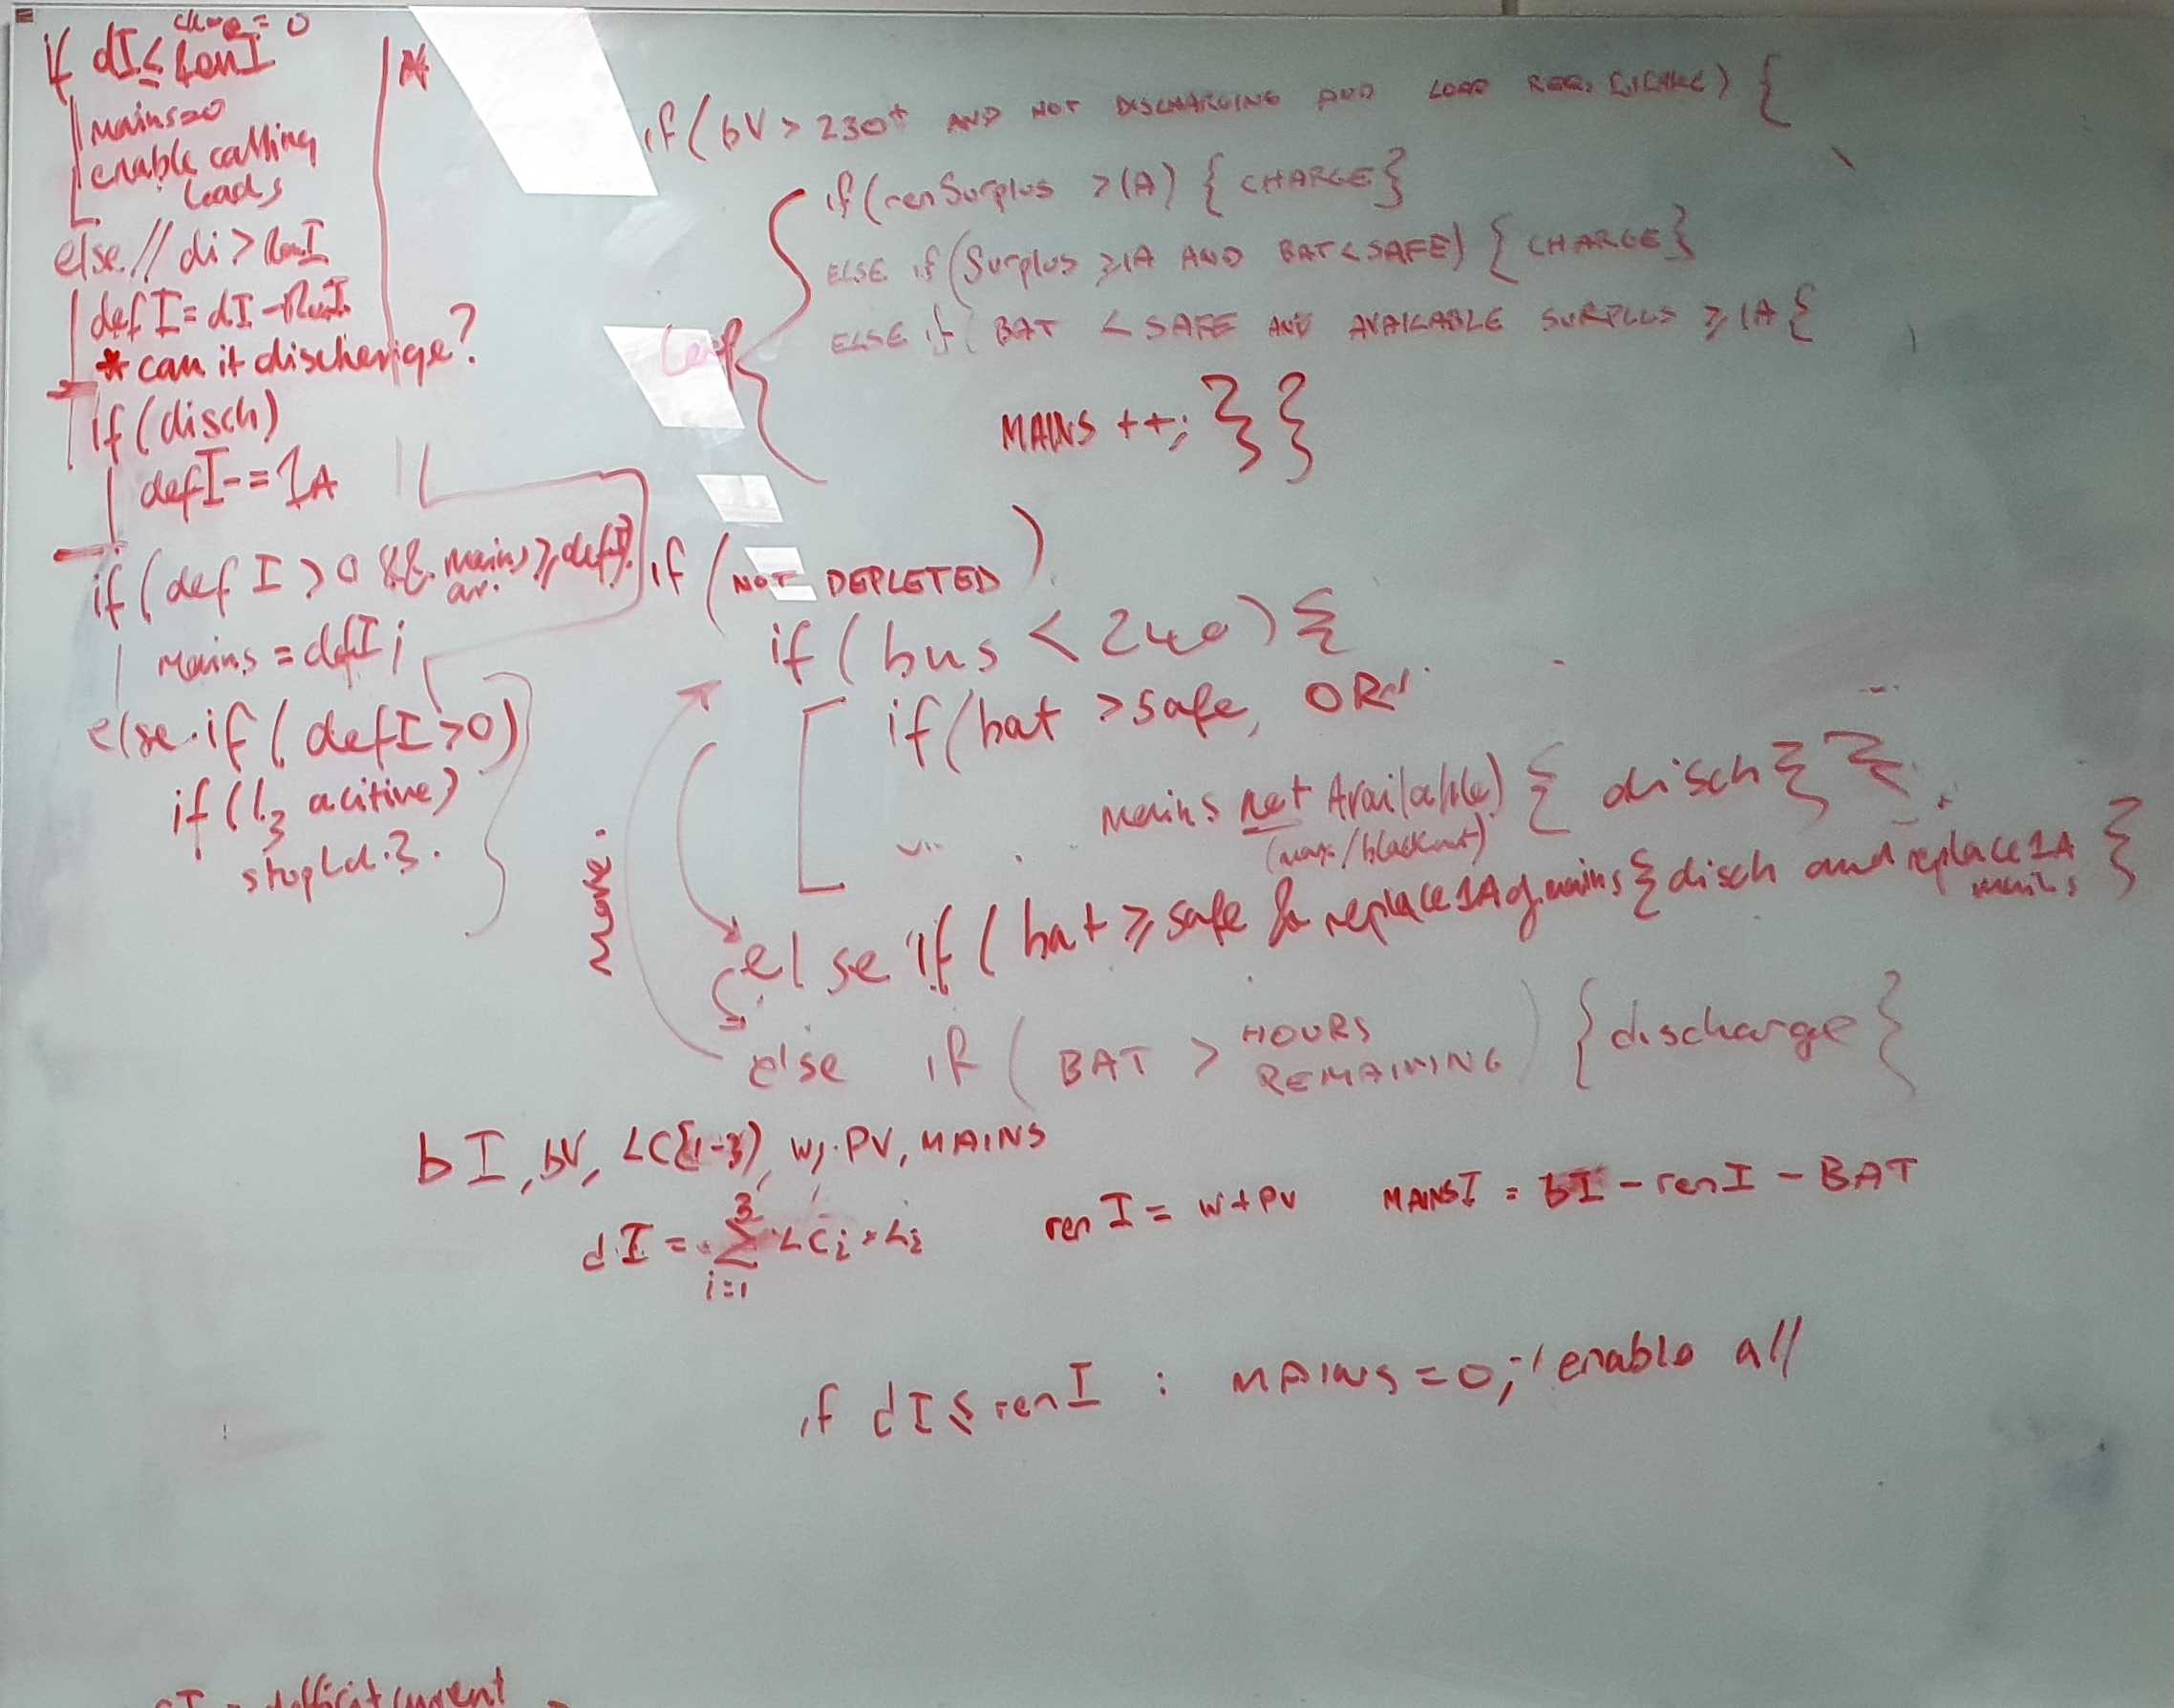 charge = 0
if dI ≤ renI
mains=0
enable calling
loads
else // di > RenI
defI = dI - RenI
* can it discherige?
if (disch)
defI -= 1A
if (def I > 0 && mains ≥ defI)
av.
mains = defI;
else if (defI > 0)
if (l3 acitive)
stop Ld.3.
if (bV > 230+ AND NOT DISCHARGING AND LOAD REQ.
if (renSurplus > 1A) { CHARGE }
ELSE if (Surplus ≥ 1A AND BAT < SAFE) { CHARGE }
Loop
ELSE if ( BAT < SAFE AND AVAILABLE SURPLUS ≥ 1A {
MAINS ++; } }
if (NOT DEPLETED)
if (bus < 240) {
if (bat > safe, OR
mains not Available) { disch } }
(max / blackout)
else if ( bat ≥ safe & replace 1A of mains { disch and replace 1A
mains }
move.
else if ( BAT > HOURS
REMAINING ) { discharge }
bI, bV, LC(1-3), W, PV, MAINS
dI = 3 Σ i=1 LCi * Li
ren I = W + PV
MAINSI = bI - renI - BAT
if dI ≤ renI : MAINS = 0; enable all
defficit current